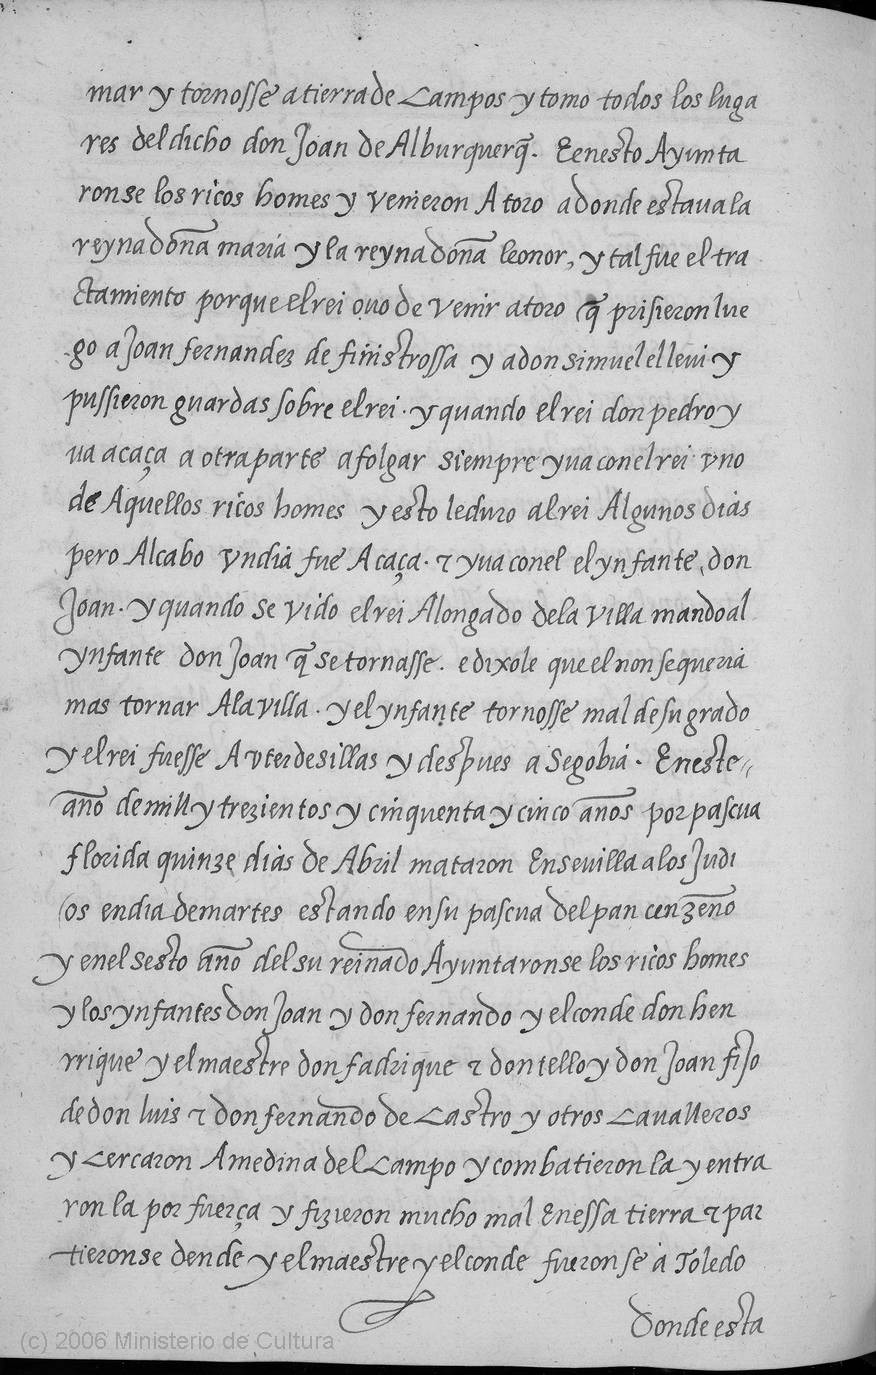 mar y tornosse a tierra de Campos y tomo todos los luga
res del dicho don Joan de Alburquerq̃. E en esto Ayunta
ron se los ricos homes y venieron A toro adonde estava la
reyna doña maria y la reyna doña leonor, y tal fue el tra
ctamiento porque el rei ovo de venir a toro q̃ prisieron lue
go a Joan fernandez de finistrossa y a don simuel el levi y
pussieron guardas sobre el rei. y quando el rei don pedro y
va a caça a otra parte a folgar siempre yva con el rei vno
de Aquellos ricos homes y esto le duro al rei Algunos dias
pero Al cabo vn dia fue A caça. & yva con el el ynfante don
Joan. y quando se vido el rei Alongado de la villa mando al
ynfante don Joan q̃ se tornasse. e dixole que el non se queria
mas tornar A la villa. y el ynfante tornosse mal de su grado
y el rei fuesse A vterdesillas y despues a Segobia. En este
año de mill y trezientos y cinquenta y cinco años por pascua
florida quinze dias de Abril mataron En sevilla a los Judi
os en dia de martes estando en su pascua del pan cenzeño
y en el sesto año del su reinado Ayuntaron se los ricos homes
y los ynfantes don Joan y don fernando y el conde don hen
rrique y el maestre don fadrique & don tello y don Joan fijo
de don luis & don fernando de Castro y otros Cavalleros
y Cercaron A medina del Campo y combatieron la y entra
ron la por fuerça y fizieron mucho mal En essa tierra & par
tieron se dende y el maestre y el conde fueron se a Toledo
donde esta
(c) 2006 Ministerio de Cultura